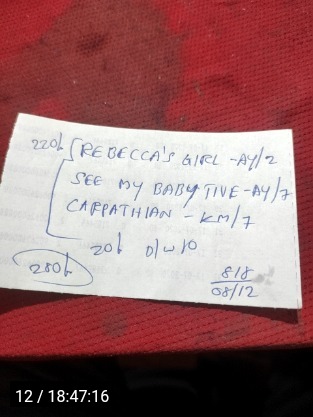 220/- REBECCA'S GIRL -AY/2
SEE MY BABY TIVE-AY/7
CARPATHIAN - KM/7
20/- D/W 10
280/-
818
08/12
12 / 18:47:16